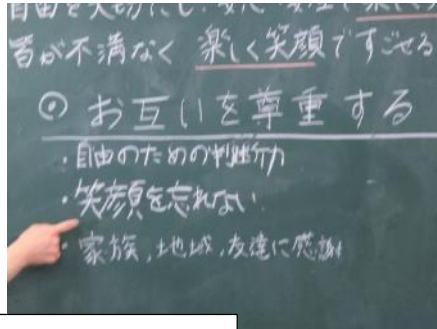 自由を大切にし、
皆が不満なく 楽しく笑顔ですごせる
◎ お互いを尊重する
・自由のための判断力
・笑顔を忘れない
・家族,地域,友達に感謝